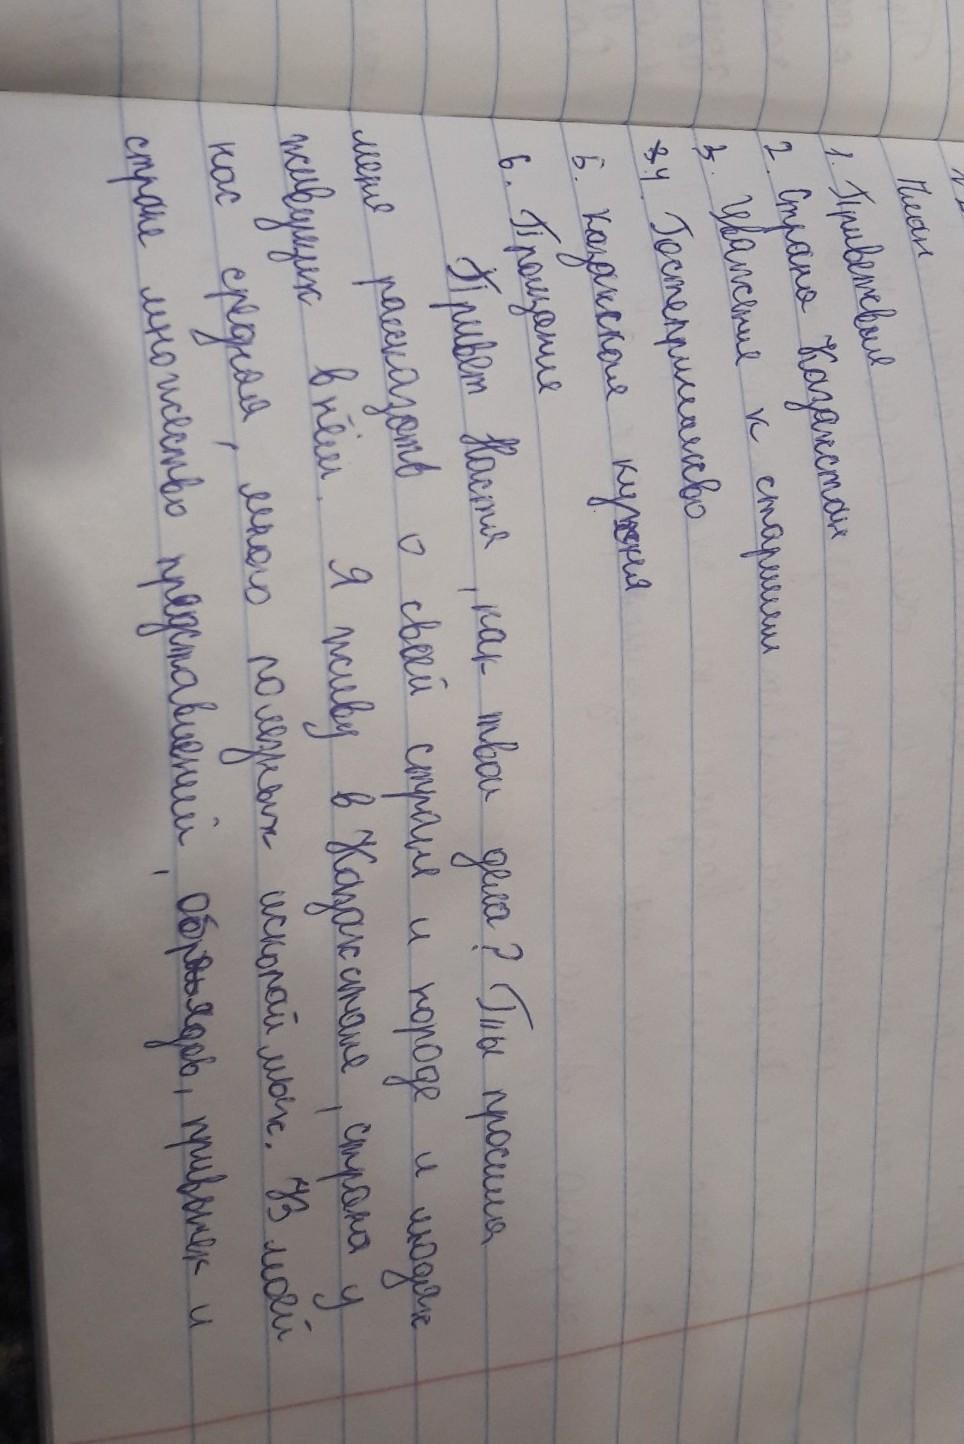 План
1. Приветсвие
2. Страна Казахстан
3. Уважение к старшим
4. Гостеприимсво
5. Казахская кухня
6. Прощание
Привет Настя, как твои дела? Ты просила
меня рассказать о своей стране и городе и людях
живущих в нём. Я живу в Казахстане, страна у
нас средняя, много полезных ископаймых. В моей
стране множество представлений, обрядов, привычек и